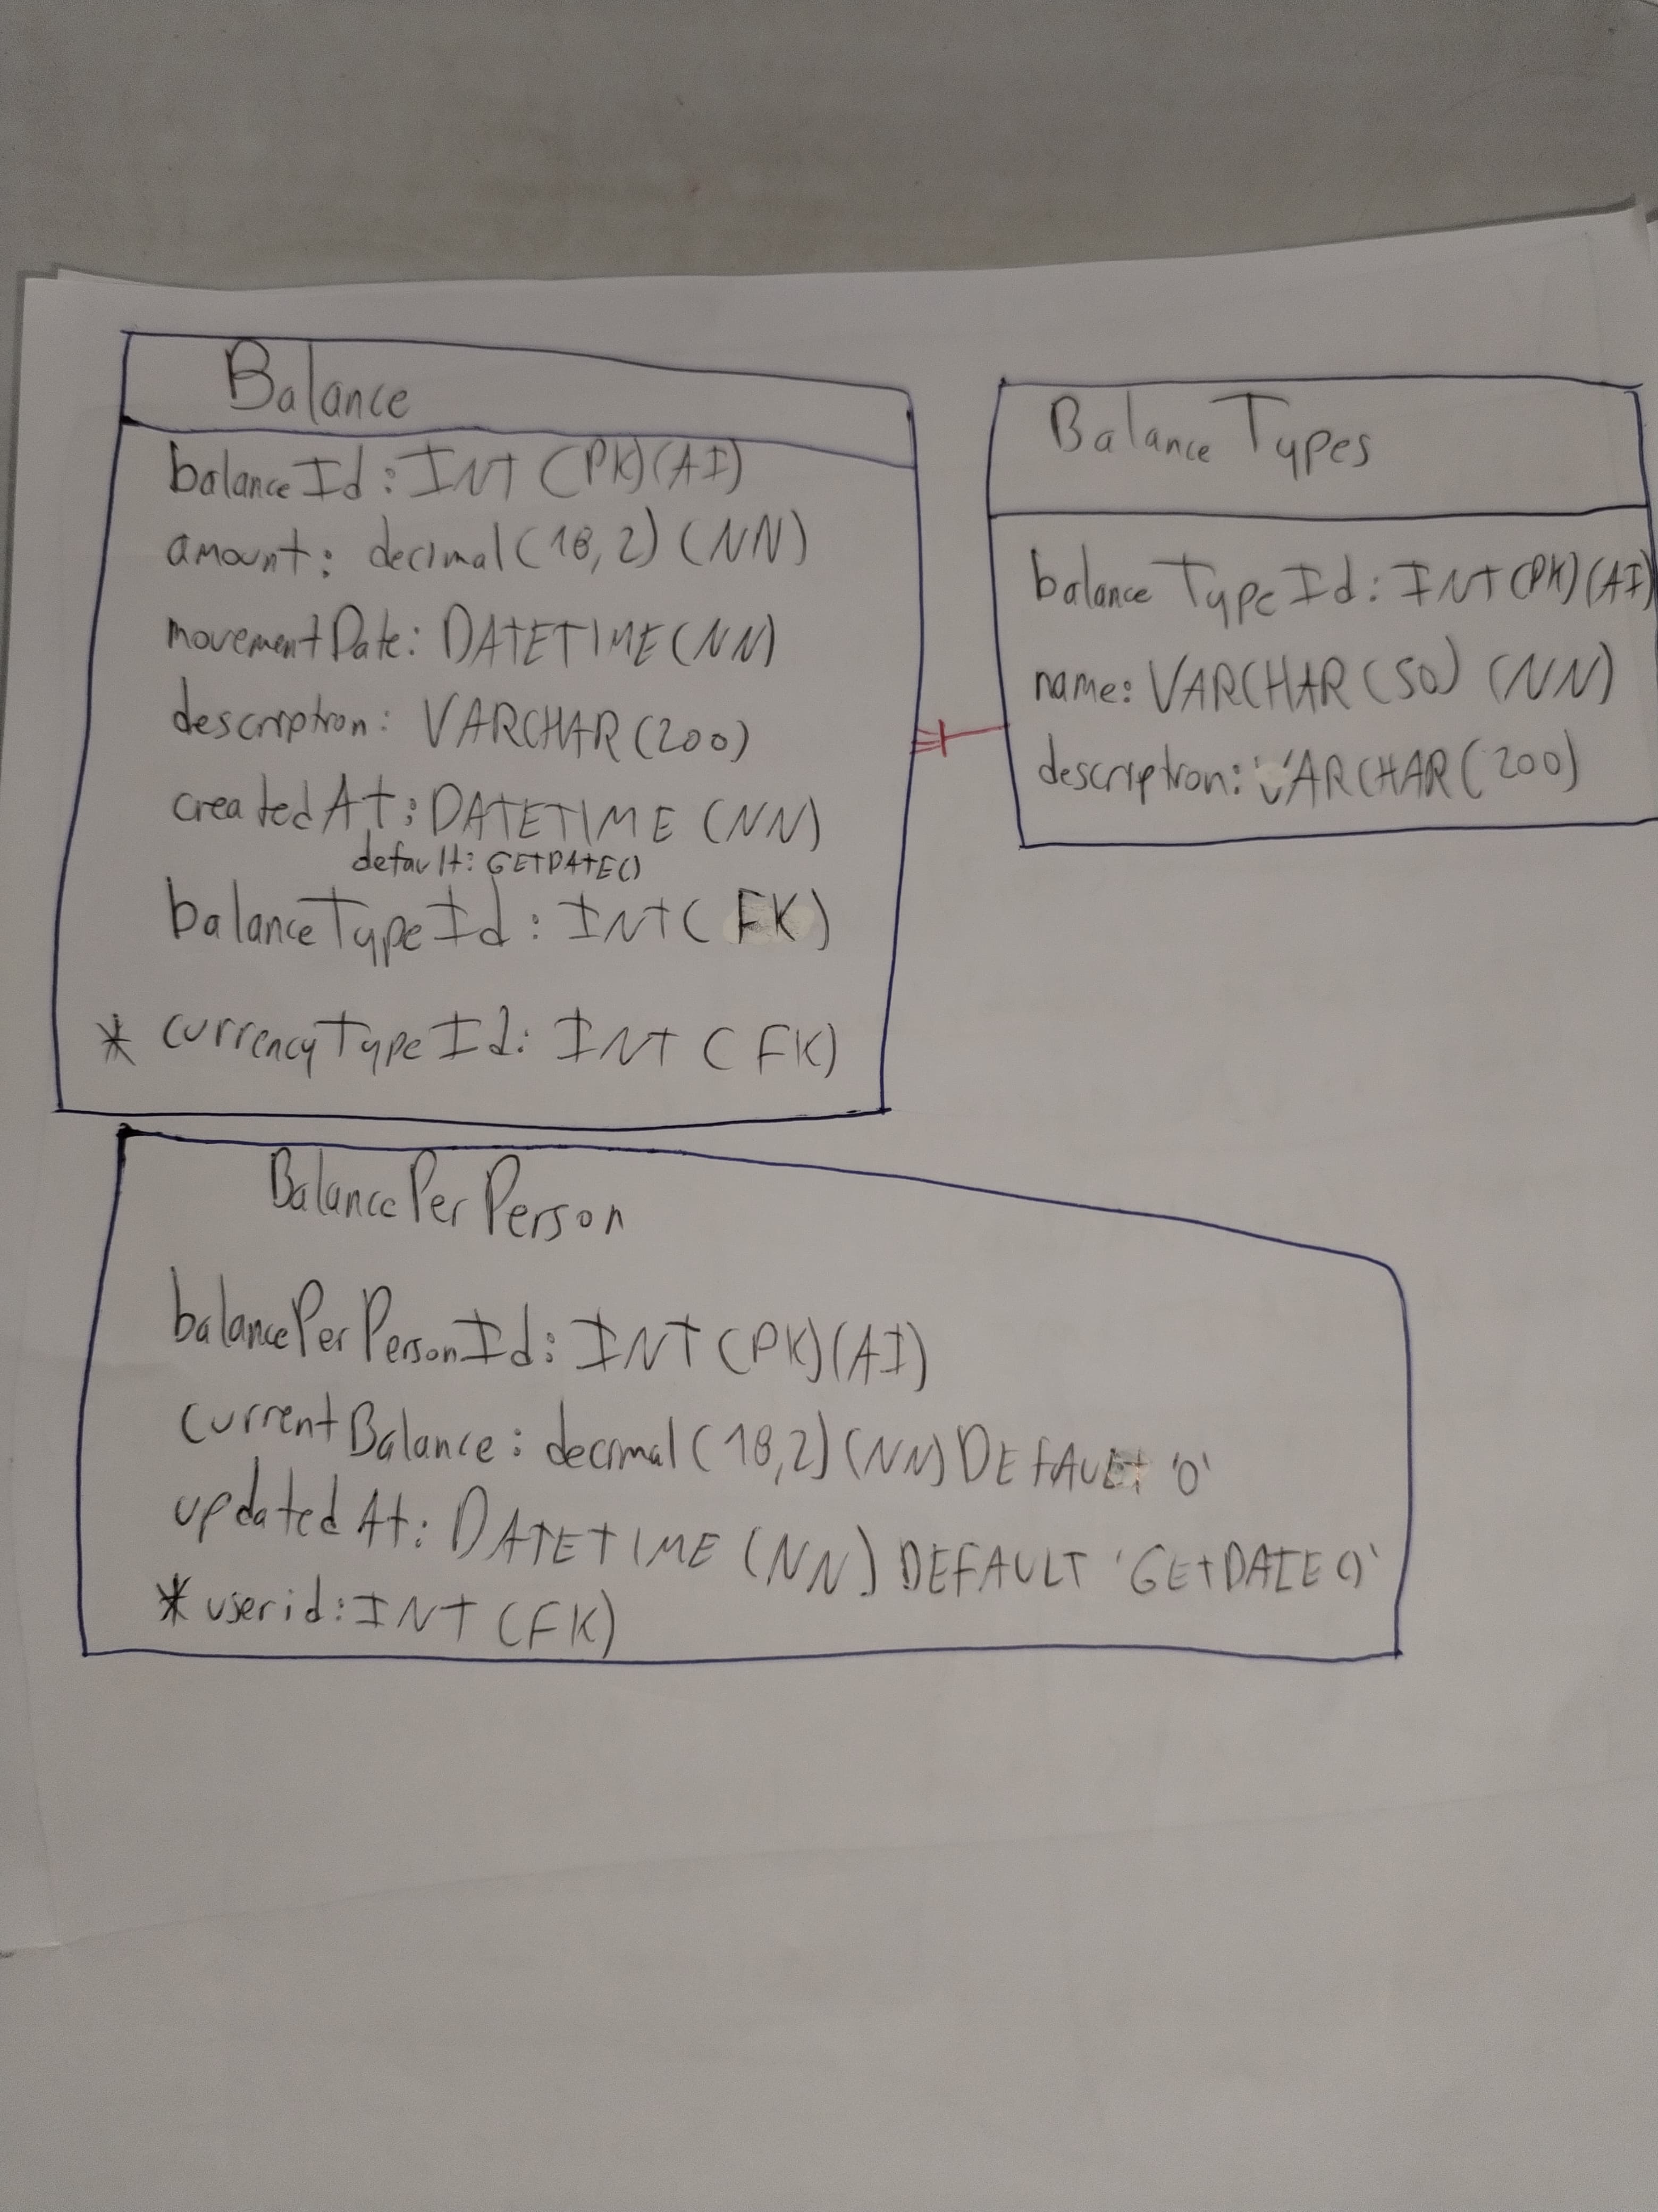 Balance
balanceId: INT (PK)(AI)
amount: decimal(18,2) (NN)
movementDate: DATETIME (NN)
description: VARCHAR(200)
createdAt: DATETIME (NN)
default: GETDATE()
balanceTypeId: INT (FK)
* currencyTypeId: INT (FK)
Balance Types
balanceTypeId: INT (PK)(AI)
name: VARCHAR(50) (NN)
description: VARCHAR(200)
BalancePerPerson
balancePerPersonId: INT (PK)(AI)
currentBalance: decimal(18,2) (NN) DEFAULT '0'
updatedAt: DATETIME (NN) DEFAULT 'GETDATE()'
* userid: INT (FK)